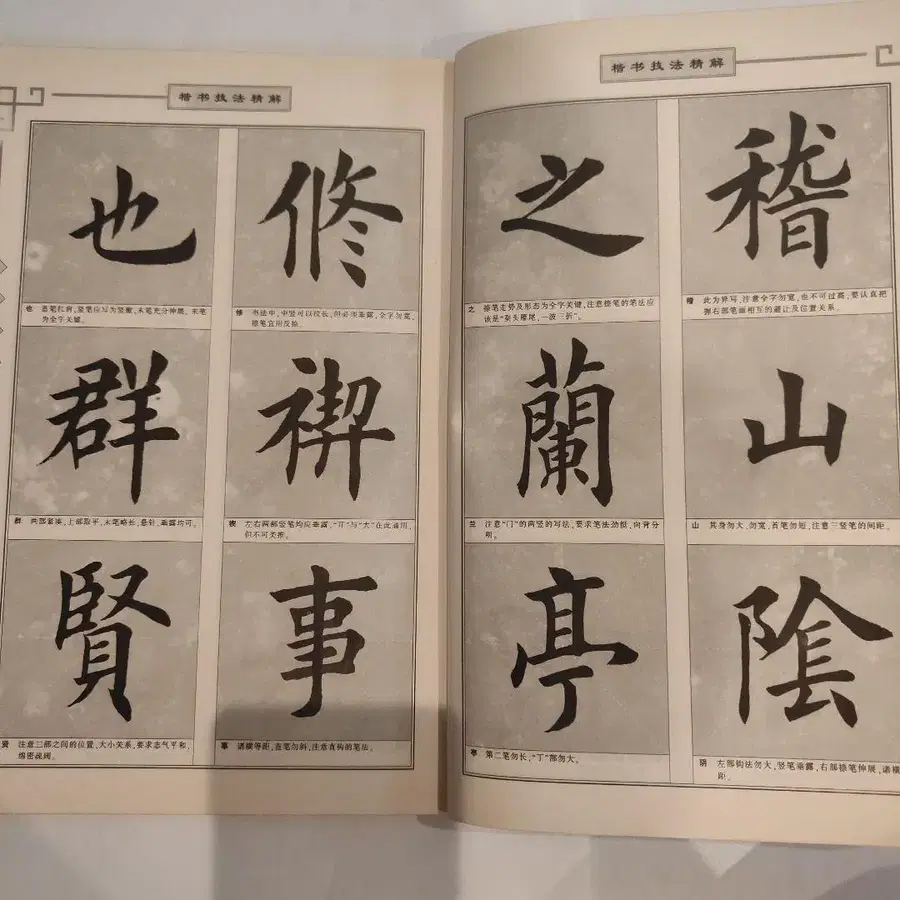 楷书技法精解
稽
稽 此为异写,注意全字勿宽,也不可过高;要认真把
握右部笔画相互的避让及位置关系。
山
山 其身勿大、勿宽,首笔勿短,注意三竖笔的间距。
陰
阴 左部钩法勿大,竖笔垂露,右部捺笔伸展,诸横
距。
之
之 捺笔走势及形态为全字关键,注意捺笔的笔法应
该是“蚕头雁尾,一波三折”。
蘭
兰 注意“门”的两竖的写法,要求笔法劲挺,向背分
明。
亭
亭 第二笔勿长,“丁”部勿大。
楷书技法精解
修
修 书法中,中竖可以较长,但必须垂露,全字勿宽,
捺笔宜用反捺。
禊
禊 左右两部竖笔均应垂露,“丌”与“大”在此通用,
但不可类推。
事
事 诸横等距,直笔勿斜,注意直钩的笔法。
也
也 竖笔应写为竖撇,末笔充分伸展、末笔
为全字关键。
群
群 两部紧凑,上部取平,末笔略长,悬针、垂露均可。
賢
贤 注意三部之间的位置、大小关系,要求志气平和,
绵密疏阔。